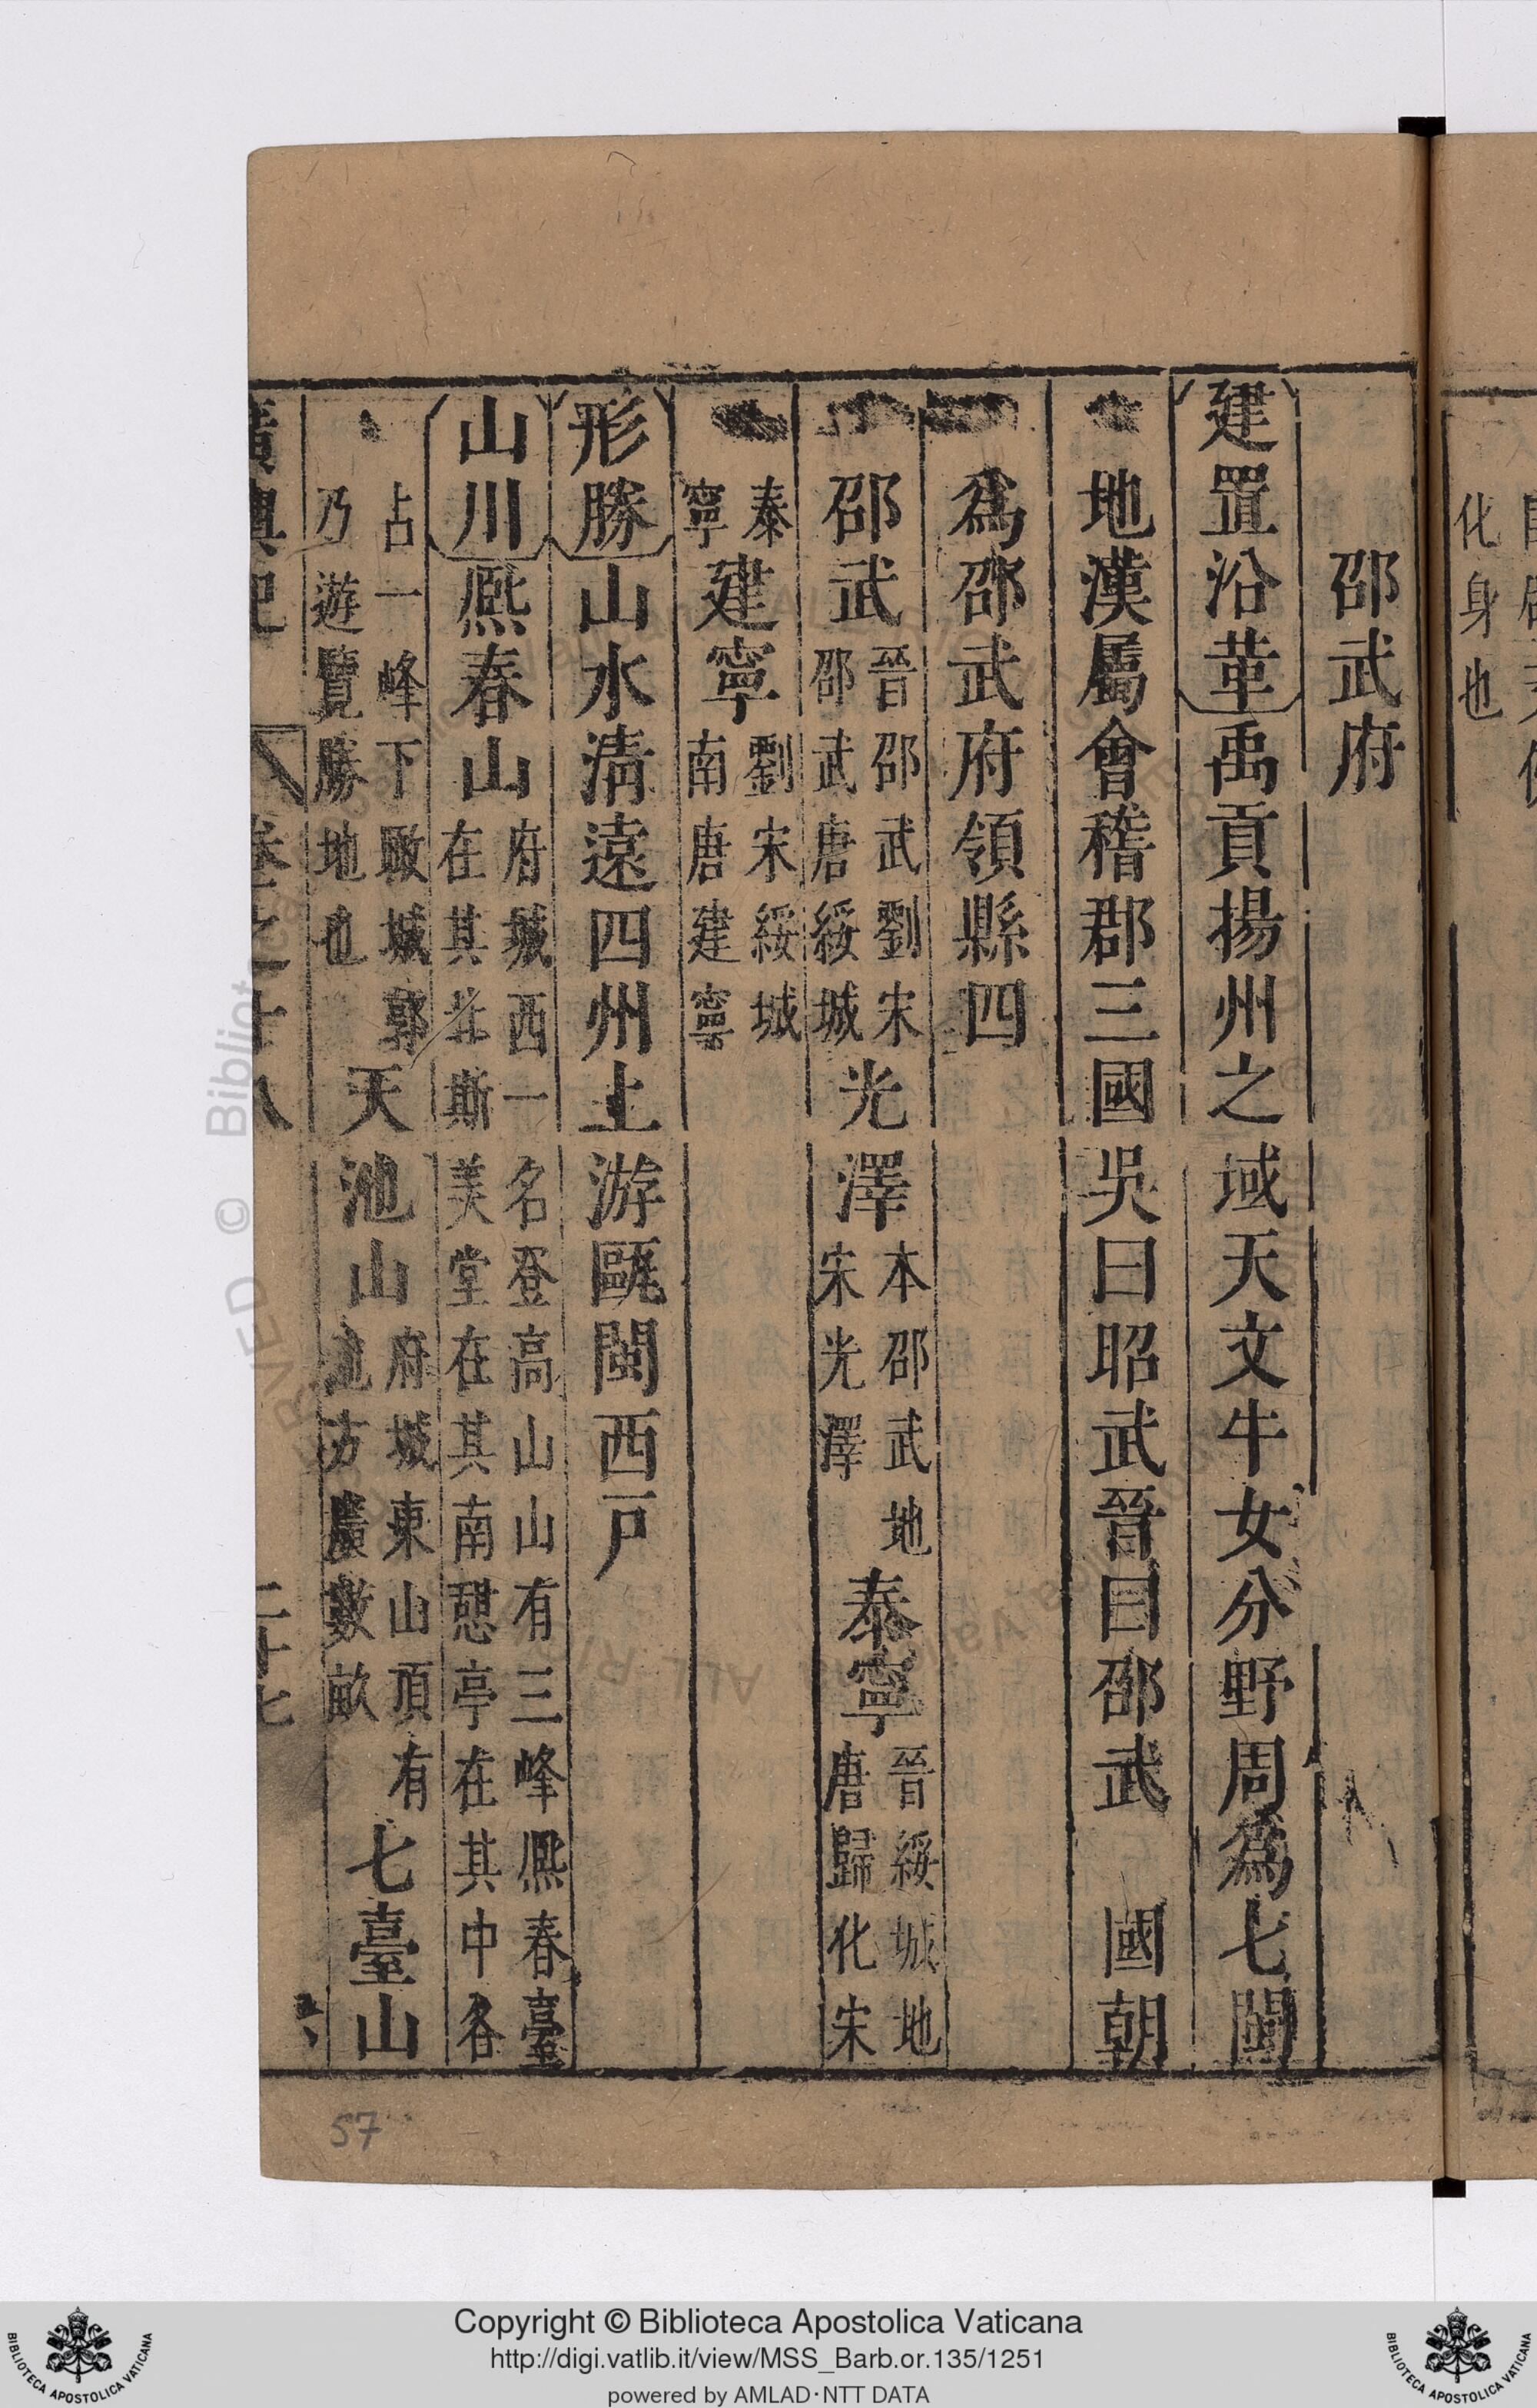 化身也
邵武府
建置沿革禹貢揚州之域天文牛女分野周爲七閩
地漢屬會稽郡三國吳曰昭武晉曰邵武 國朝
爲邵武府領縣四
邵武晉邵武劉宋邵武唐綏城光澤本邵武地宋光澤泰寧晉綏城地唐歸化宋
泰寧建寧劉宋綏城南唐建寧
形勝山水清遠四州上游甌閩西戶
山川熙春山府城西一名登高山山有三峰熙春臺在其北斯美堂在其南憩亭在其中各
占一峰下瞰城郭乃遊覽勝地也天池山府城東山頂有池方廣數畝七臺山
廣輿記 卷之十八 二十七
57
Copyright © Biblioteca Apostolica Vaticana
http://digi.vatlib.it/view/MSS_Barb.or.135/1251
powered by AMLAD·NTT DATA
BIBLIOTECA APOSTOLICA VATICANA
BIBLIOTECA APOSTOLICA VATICANA